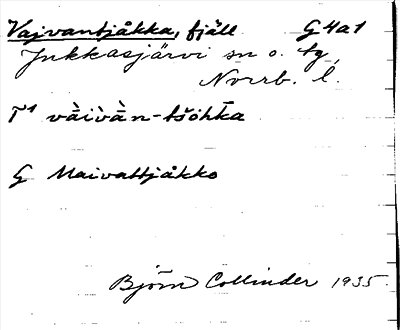 Vajvantjåkka, fjäll G4a1
Jukkasjärvi sn o. tg,
Norrb. l.
T¹ vàivàn-tšòhka
G Maivattjåkko
Björn Collinder 1935.